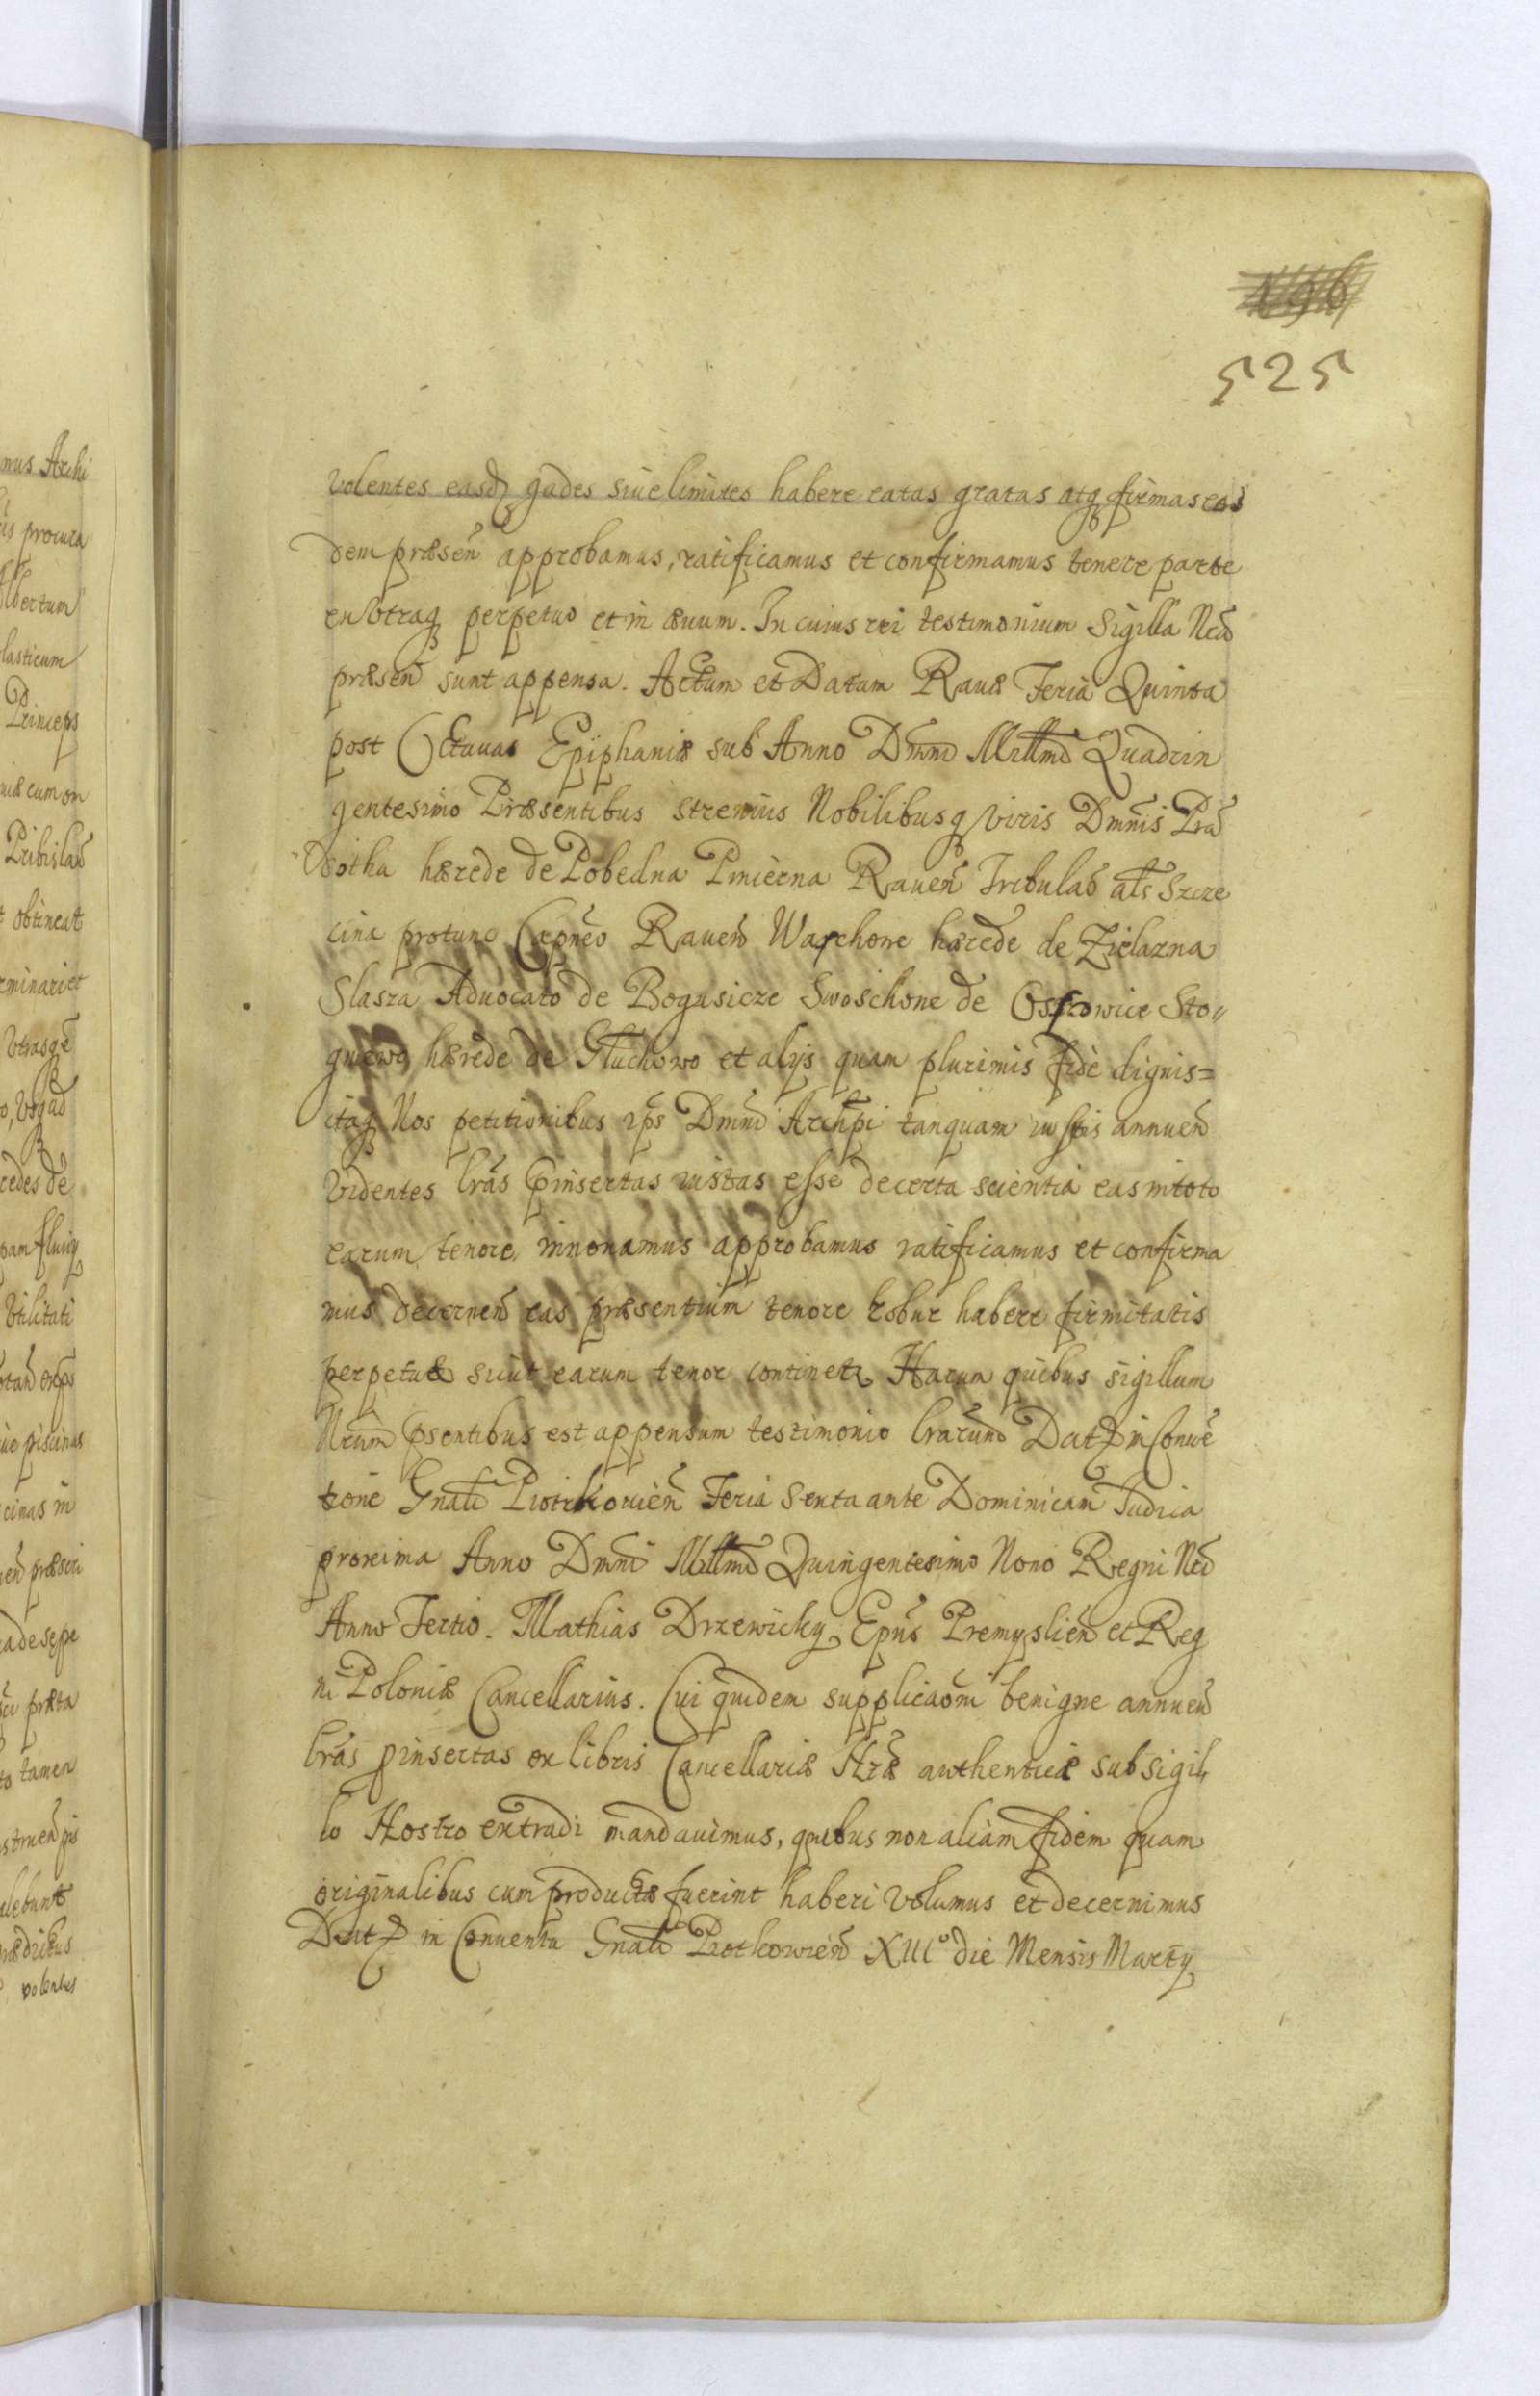 525
volentes easdẽ gades siue limites habere ratas gratas atq firmas eas
dem præsen̄ approbamus, ratificamus et confirmamus tenere parte
ex vtraq perpetuo et in æuum. In cuius rei testimonium Sigilla Nrã
præsen̄ sunt appensa. Actum et Datum Rauæ Feria Quinta
post Octauas Epiphaniæ sub Anno Dnni Millmo Quadrin
gentesimo Præsentibus strenuis Nobilibusq viris Dmnis Pra
dotha hærede de Pobedna Pincerna Rauen̄ Tribulo als Szcze
cina protunc Rauen̄ Waschone hærede de Zielazna
Slasza Aduocato de Bogusicze Swoschone de Ossowice Sto„
gniewo hærede de Gluchowo et alys quam plurimis fide dignis=
itaq Nos petitionibus ips Dmni Archpi tanquam iustis annuen̄
videntes lrãs pinsertas iustas esse de certa scientia eas in toto
earum tenore innouamus approbamus ratificamus et confirma
mus decernen̄ eas præsentium tenore robur habere firmitatis
perpetuæ sicut earum tenor continet. Harum quibus sigillum
Nrum psentibus est appensum testimonio lrarum Dat in Conue
tione Gnali Piotrkouien̄ Feria Sexta ante Dominicam Iudica
proxima Anno Dmni Millmo Quingentesimo Nono Regni Nrĩ
Anno Tertio. Mathias Drzewicky Epũs Premyslien̄ et Reg
ni Poloniæ Cancellarius. Cui quidem supplicaõni benigne annuen̄
lrãs pinsertas ex libris Cancellariæ Nræ authentice sub sigil
lo Nostro extradi mandauimus, quibus non aliam fidem quam
originalibus cum productæ fuerint haberi volumus et decernimus
Dat in Conuentu Gnali Piotkowien̄ XIII° die Mensis Marty